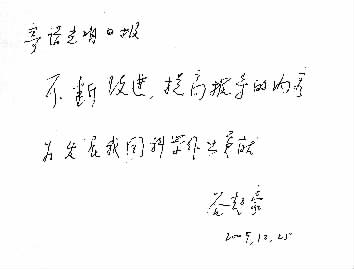 寄语光明日报
不断改进,提高报导的内容
为发展我国科学作出贡献
谷超豪
2009.12.25